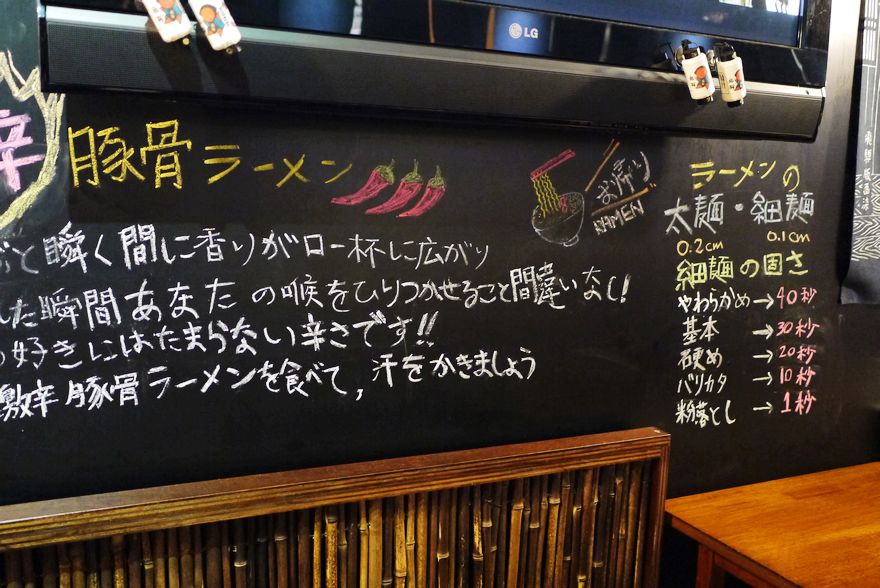 LG
辛
豚骨ラーメン
RAMEN
と瞬く間に香りが口一杯に広がり
した瞬間あなたの喉をひりつかせること間違いなし!
好きにはたまらない辛さです!!
激辛豚骨ラーメンを食べて,汗をかきましょう
ラーメンの
太麺・細麺
0.2cm 0.1cm
細麺の固さ
やわらかめ→40秒
基本→30秒
硬め→20秒
バリカタ→10秒
粉落とし→1秒